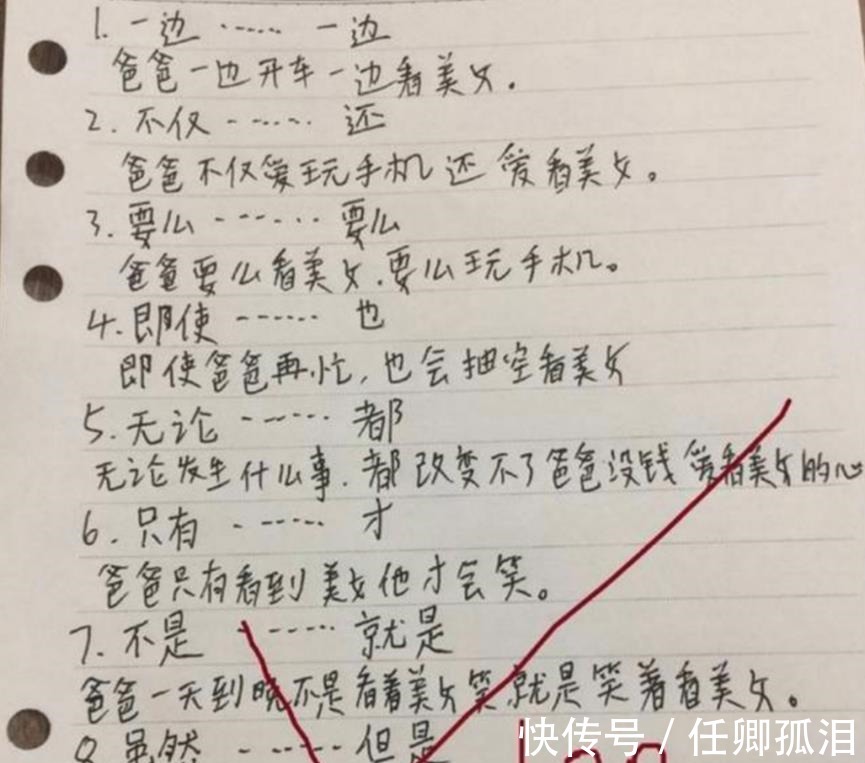 1. 一边 …… 一边
爸爸一边开车一边看美女.
2. 不仅 …… 还
爸爸不仅爱玩手机还爱看美女。
3. 要么 …… 要么
爸爸要么看美女.要么玩手机。
4. 即使 …… 也
即使爸爸再忙,也会抽空看美女
5. 无论 …… 都
无论发生什么事.都改变不了爸爸没钱爱看美女的心
6. 只有 …… 才
爸爸只有看到美女他才会笑。
7. 不是 …… 就是
爸爸一天到晚不是看着美女笑就是笑着看美女。
8 虽然 …… 但是
快传号 / 任卿孤泪